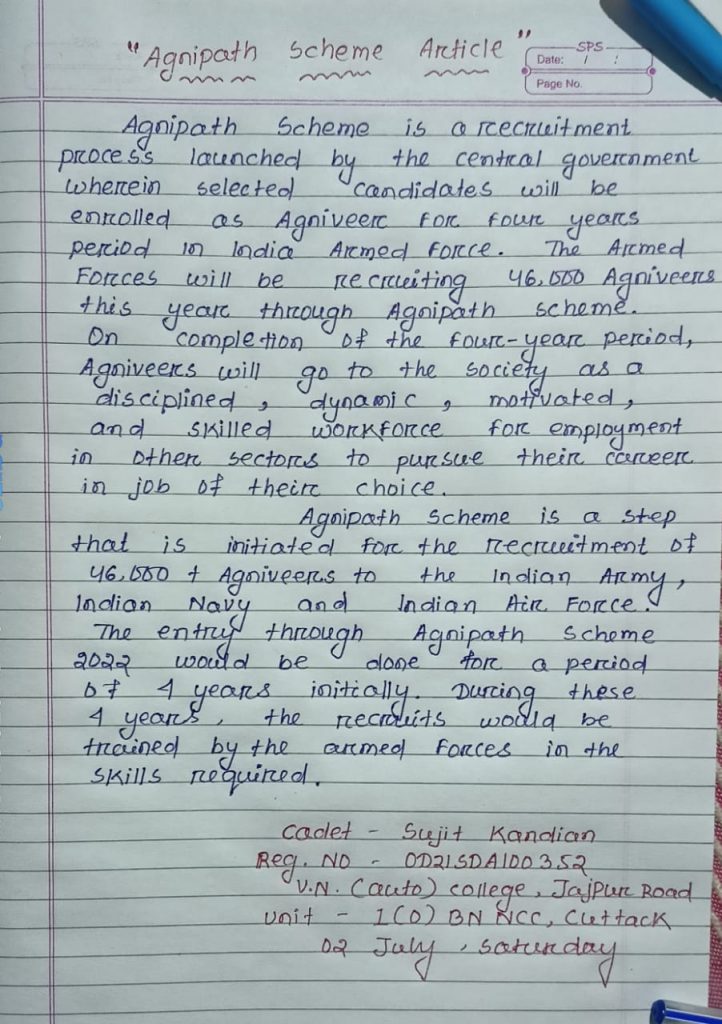 "Agnipath Scheme Article"
SPS
Date: / :
Page No.
Agnipath Scheme is a recruitment
process launched by the central government
wherein selected candidates will be
enrolled as Agniveer for four years
period in India Armed Force. The Armed
Forces will be recruiting 46,000 Agniveers
this year through Agnipath scheme.
On completion of the four-year period,
Agniveers will go to the society as a
disciplined, dynamic, motivated,
and skilled workforce for employment
in other sectors to pursue their career
in job of their choice.
Agnipath Scheme is a step
that is initiated for the recruitment of
46,000 + Agniveers to the Indian Army,
Indian Navy and Indian Air Force.
The entry through Agnipath Scheme
2022 would be done for a period
of 4 years initially. During these
4 years, the recruits would be
trained by the armed forces in the
skills required.
Cadet - Sujit Kandian
Reg. NO - OD21SDA100352
V.N. (auto) college, Jajpur Road
Unit - 1(O) BN NCC, Cuttack
02 July, Saturday